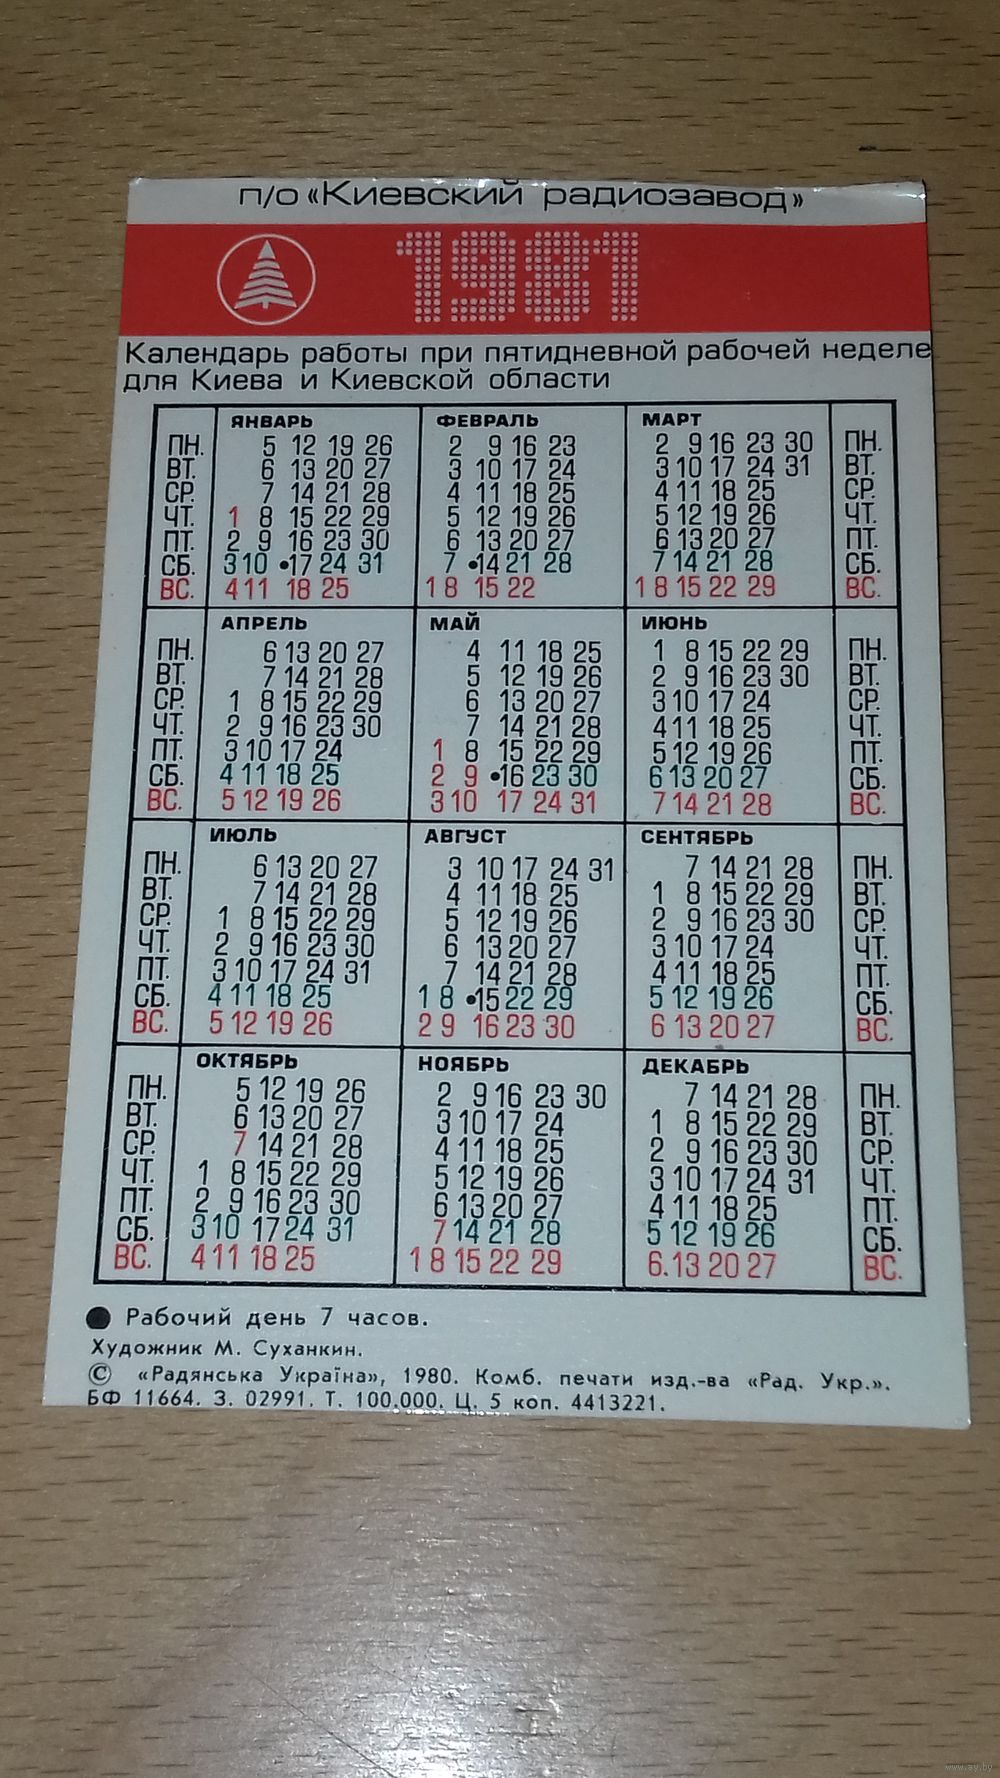 п/о «Киевский радиозавод»
1981
Календарь работы при пятидневной рабочей неделе
для Киева и Киевской области
ЯНВАРЬ ФЕВРАЛЬ МАРТ
ПН. 5 12 19 26 2 9 16 23 2 9 16 23 30 ПН.
ВТ. 6 13 20 27 3 10 17 24 3 10 17 24 31 ВТ.
СР. 7 14 21 28 4 11 18 25 4 11 18 25 СР.
ЧТ. 1 8 15 22 29 5 12 19 26 5 12 19 26 ЧТ.
ПТ. 2 9 16 23 30 6 13 20 27 6 13 20 27 ПТ.
СБ. 3 10 •17 24 31 7 •14 21 28 7 14 21 28 СБ.
ВС. 4 11 18 25 1 8 15 22 1 8 15 22 29 ВС.
АПРЕЛЬ МАЙ ИЮНЬ
ПН. 6 13 20 27 4 11 18 25 1 8 15 22 29 ПН.
ВТ. 7 14 21 28 5 12 19 26 2 9 16 23 30 ВТ.
СР. 1 8 15 22 29 6 13 20 27 3 10 17 24 СР.
ЧТ. 2 9 16 23 30 7 14 21 28 4 11 18 25 ЧТ.
ПТ. 3 10 17 24 1 8 15 22 29 5 12 19 26 ПТ.
СБ. 4 11 18 25 2 9 •16 23 30 6 13 20 27 СБ.
ВС. 5 12 19 26 3 10 17 24 31 7 14 21 28 ВС.
ИЮЛЬ АВГУСТ СЕНТЯБРЬ
ПН. 6 13 20 27 3 10 17 24 31 7 14 21 28 ПН.
ВТ. 7 14 21 28 4 11 18 25 1 8 15 22 29 ВТ.
СР. 1 8 15 22 29 5 12 19 26 2 9 16 23 30 СР.
ЧТ. 2 9 16 23 30 6 13 20 27 3 10 17 24 ЧТ.
ПТ. 3 10 17 24 31 7 14 21 28 4 11 18 25 ПТ.
СБ. 4 11 18 25 1 8 •15 22 29 5 12 19 26 СБ.
ВС. 5 12 19 26 2 9 16 23 30 6 13 20 27 ВС.
ОКТЯБРЬ НОЯБРЬ ДЕКАБРЬ
ПН. 5 12 19 26 2 9 16 23 30 7 14 21 28 ПН.
ВТ. 6 13 20 27 3 10 17 24 1 8 15 22 29 ВТ.
СР. 7 14 21 28 4 11 18 25 2 9 16 23 30 СР.
ЧТ. 1 8 15 22 29 5 12 19 26 3 10 17 24 31 ЧТ.
ПТ. 2 9 16 23 30 6 13 20 27 4 11 18 25 ПТ.
СБ. 3 10 17 24 31 7 14 21 28 5 12 19 26 СБ.
ВС. 4 11 18 25 1 8 15 22 29 6.13 20 27 ВС.
● Рабочий день 7 часов.
Художник М. Суханкин.
© «Радянська Україна», 1980. Комб. печати изд.-ва «Рад. Укр.».
БФ 11664. З. 02991. Т. 100.000. Ц. 5 коп. 4413221.
www.ay.by